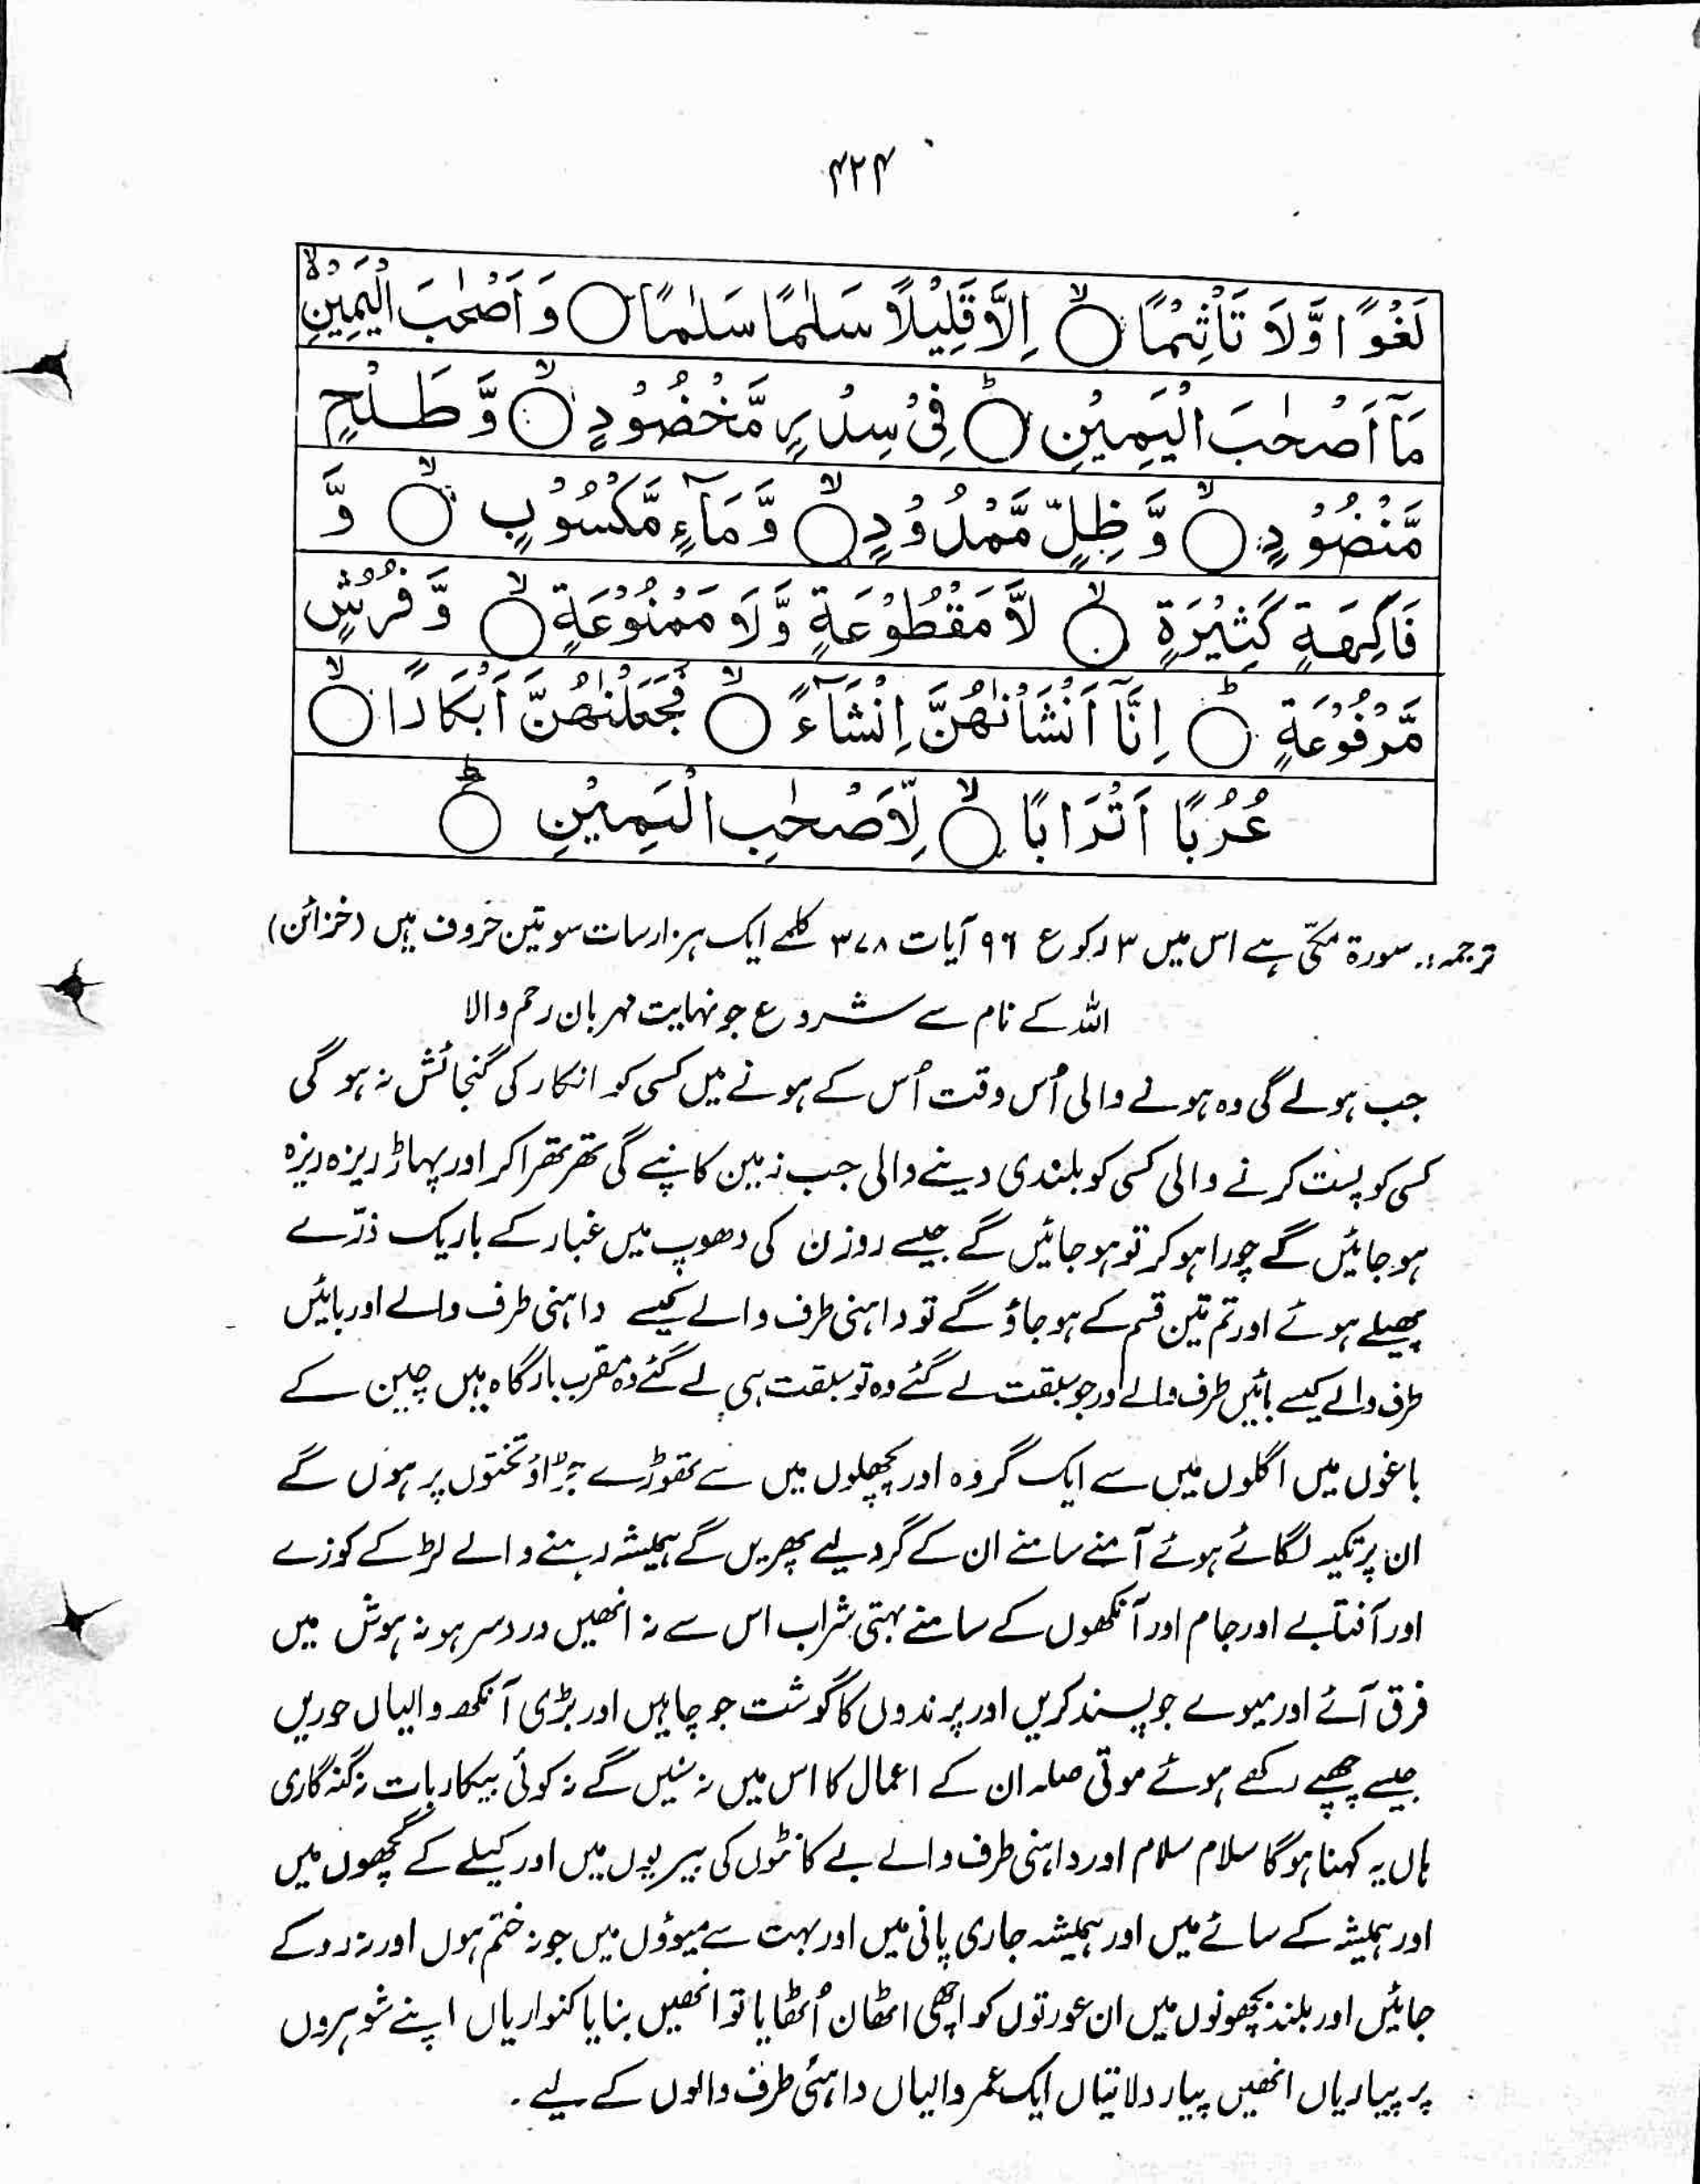 ۴۲۴
لَغْوًا وَّلَا تَأْثِيْمًا ۙ اِلَّا قِيْلًا سَلٰمًا سَلٰمًا وَ اَصْحٰبَ الْيَمِيْنِ ۙ
مَآ اَصْحٰبَ الْيَمِيْنِ ؕ فِىْ سِدْرٍ مَّخْضُوْدٍ ۙ وَّ طَلْحٍ
مَّنْضُوْدٍ ۙ وَّ ظِلٍّ مَّمْدُوْدٍ ۙ وَّ مَآءٍ مَّكْسُوْبٍ ۙ وَّ
فَاكِهَةٍ كَثِيْرَةٍ ۙ لَّا مَقْطُوْعَةٍ وَّلَا مَمْنُوْعَةٍ ۙ وَّ فُرُشٍ
مَّرْفُوْعَةٍ ؕ اِنَّآ اَنْشَاْنٰهُنَّ اِنْشَآءً ۙ فَجَعَلْنٰهُنَّ اَبْكَارًا ۙ
عُرُبًا اَتْرَابًا ۙ لِّاَصْحٰبِ الْيَمِيْنِ ؕ
ترجمہ:۔ سورۃ مکّی ہے اس میں ۳ رکوع ۹۶ آیات ۳۷۸ کلمے ایک ہزار سات سو تین حروف ہیں (خزائن)
اللہ کے نام سے شروع جو نہایت مہربان رحم والا
جب ہولے گی وہ ہونے والی اُس وقت اُس کے ہونے میں کسی کو انکار کی گنجائش نہ ہو گی
کسی کو پست کرنے والی کسی کو بلندی دینے والی جب زمین کانپے گی تھرتھرا کر اور پہاڑ ریزہ ریزہ
ہو جائیں گے چورا ہو کر تو ہو جائیں گے جیسے روزن کی دھوپ میں غبار کے باریک ذرّے
پھیلے ہوئے اور تم تین قسم کے ہو جاؤ گے تو داہنی طرف والے کیسے داہنی طرف والے اور بائیں
طرف والے کیسے بائیں طرف والے اور جو سبقت لے گئے وہ تو سبقت ہی لے گئے وہ مقرب بارگاہ ہیں چین کے
باغوں میں اگلوں میں سے ایک گروہ اور پچھلوں میں سے تھوڑے جڑاؤ تختوں پر ہوں گے
ان پر تکیہ لگائے ہوئے آمنے سامنے ان کے گرد لیے پھریں گے ہمیشہ رہنے والے لڑکے کوزے
اور آفتابے اور جام اور آنکھوں کے سامنے بہتی شراب اس سے نہ انھیں درد سر ہو نہ ہوش میں
فرق آئے اور میوے جو پسند کریں اور پرندوں کا گوشت جو چاہیں اور بڑی آنکھ والیاں حوریں
جیسے چھپے رکھے ہوئے موتی صلہ ان کے اعمال کا اس میں نہ سُنیں گے نہ کوئی بیکار بات نہ گنہ گاری
ہاں یہ کہنا ہوگا سلام سلام اور داہنی طرف والے بے کانٹوں کی بیریوں میں اور کیلے کے گچھوں میں
اور ہمیشہ کے سائے میں اور ہمیشہ جاری پانی میں اور بہت سے میوؤں میں جو نہ ختم ہوں اور نہ روکے
جائیں اور بلند بچھونوں میں ان عورتوں کو اچھی اٹھان اُٹھایا تو انھیں بنایا کنواریاں اپنے شوہروں
پر پیاریاں انھیں پیار دلاتیاں ایک عمر والیاں داہنی طرف والوں کے لیے ۔